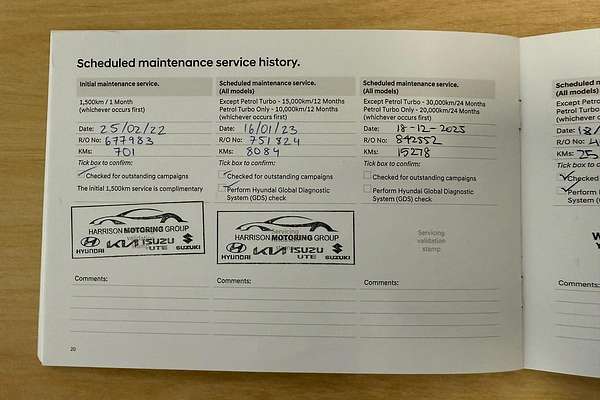 Scheduled maintenance service history.
Initial maintenance service.
1,500km / 1 Month
(whichever occurs first)
Date: 25/02/22
R/O No: 677983
KMs: 701
Tick box to confirm:
Checked for outstanding campaigns
The initial 1,500km service is complimentary
HARRISON MOTORING GROUP
HYUNDAI KIA ISUZU UTE SUZUKI
Comments:
Scheduled maintenance service.
(All models)
Except Petrol Turbo - 15,000km/12 Months
Petrol Turbo Only - 10,000km/12 Months
(whichever occurs first)
Date: 16/01/23
R/O No: 751824
KMs: 8084
Tick box to confirm:
Checked for outstanding campaigns
Perform Hyundai Global Diagnostic
System (GDS) check
Servicing
HARRISON MOTORING GROUP
HYUNDAI KIA ISUZU UTE SUZUKI
Comments:
Scheduled maintenance service.
(All models)
Except Petrol Turbo - 30,000km/24 Months
Petrol Turbo Only - 20,000km/24 Months
(whichever occurs first)
Date: 18-12-2023
R/O No: 842552
KMs: 15278
Tick box to confirm:
Checked for outstanding campaigns
Perform Hyundai Global Diagnostic
System (GDS) check
Servicing
validation
stamp
Comments:
20
Scheduled m
(All models)
Except Petrol T
Petrol Turbo O
(whichever occ
Date: 18/
R/O No: 4
KMs: 25
Tick box to c
Checked
Perform
System (G
W
Y
Comments: